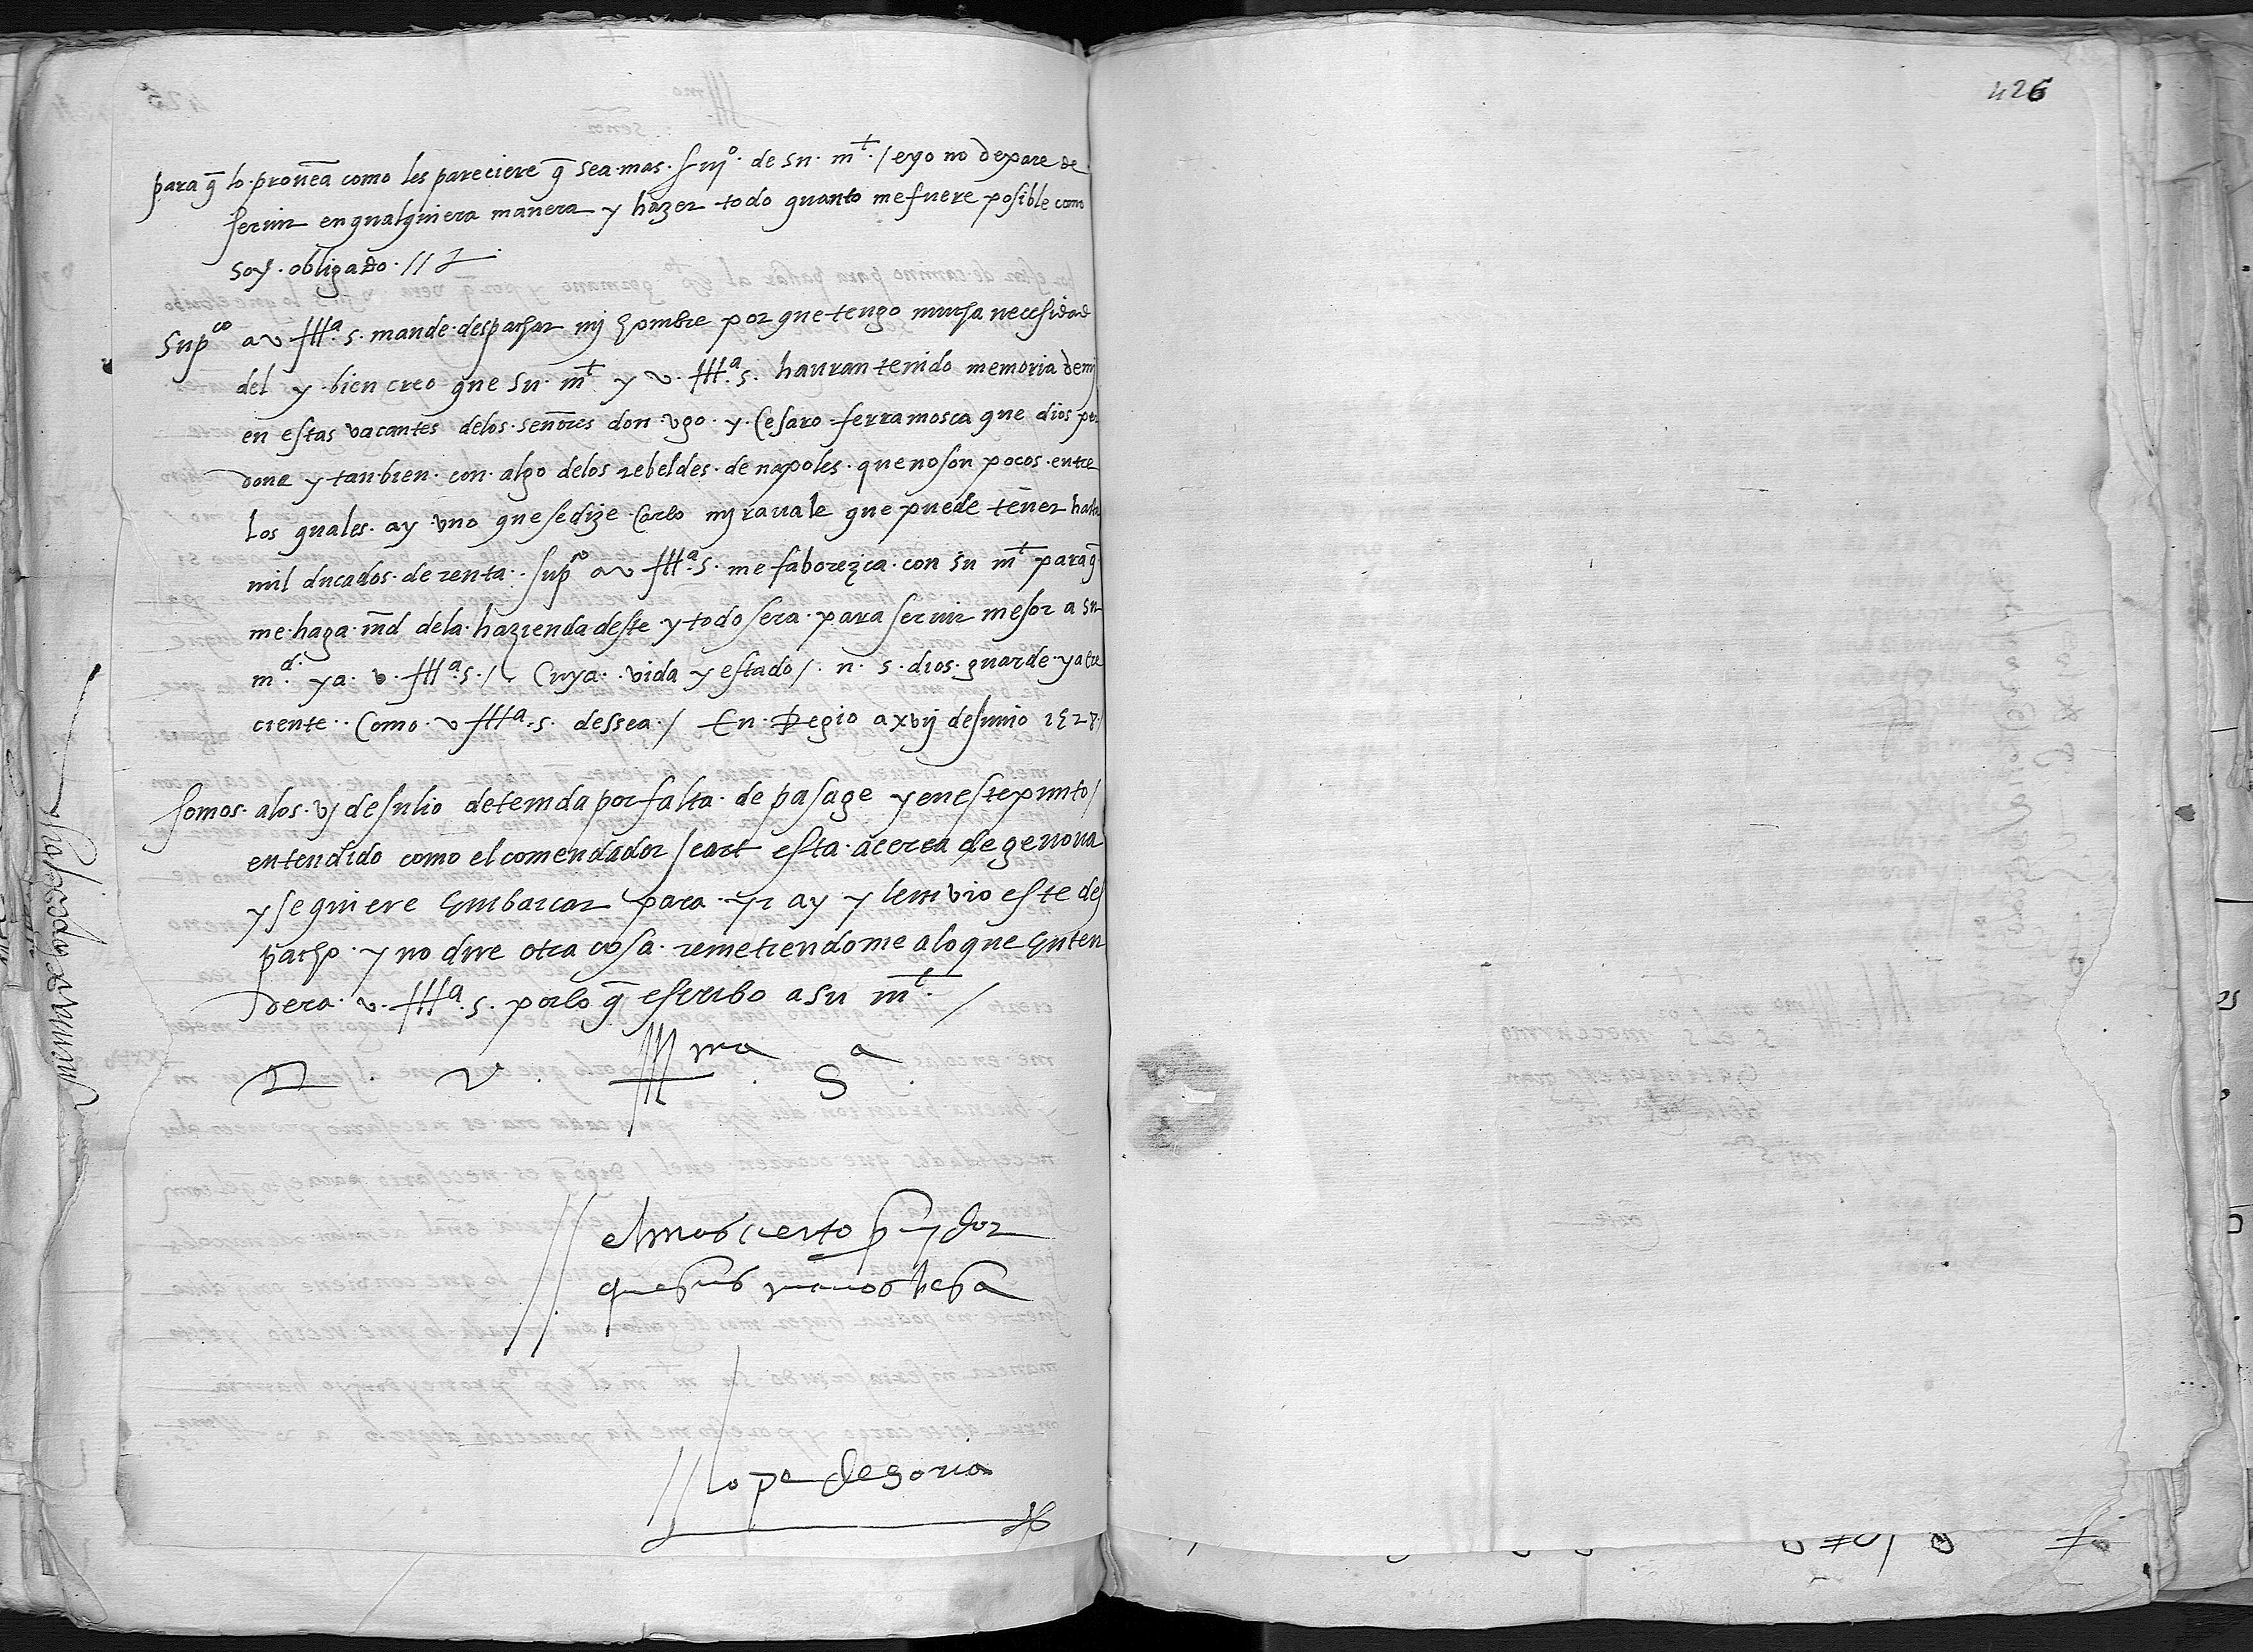 426
para q̃ lo proueã como les pareciere q̃ sea mas suiº de su mt / e yo no dexare de
seruir en qualquiera manera y hazer todo quanto me fuere posible como
soy obligado //
Supco a v Illa s. mande despachar mj hombre porque tengo mucha necesidad
del y bien creo que su mt y v. Illa s. hauran tenido memoria de mj
en estas vacantes delos señores don vgo y Cesaro ferramosca que dios per
done y tanbien con algo delos rebeldes de napoles que no son pocos entre
los quales ay vno que se dize Carlo mjrauale que puede tener hasta
mil ducados de renta. supco a v Illa s. me faborezca con su mt para q̃
me haga md dela hazienda deste y todo sera para seruir mejor a su
md. y a v. Illa s. / Cuya vida y estado / n. s. dios guarde y acre
ciente Como v Illa s. dessea / En Regio a xvij de Junio 1528 /
Somos alos vj de Julio detenida por falta de pasage y en este punto /
entendido como el comendador Icart esta acerca de genoua
y se quiere Embarcar para yr ay y le envio este des
pacho y no dire otra cosa remetiendome alo que Enten
dera v. Illa s. por lo q̃ escribo a su mt. /
D V. Illma Sa
// el mas cierto seruydor
que sus manos besa
// lope de soria